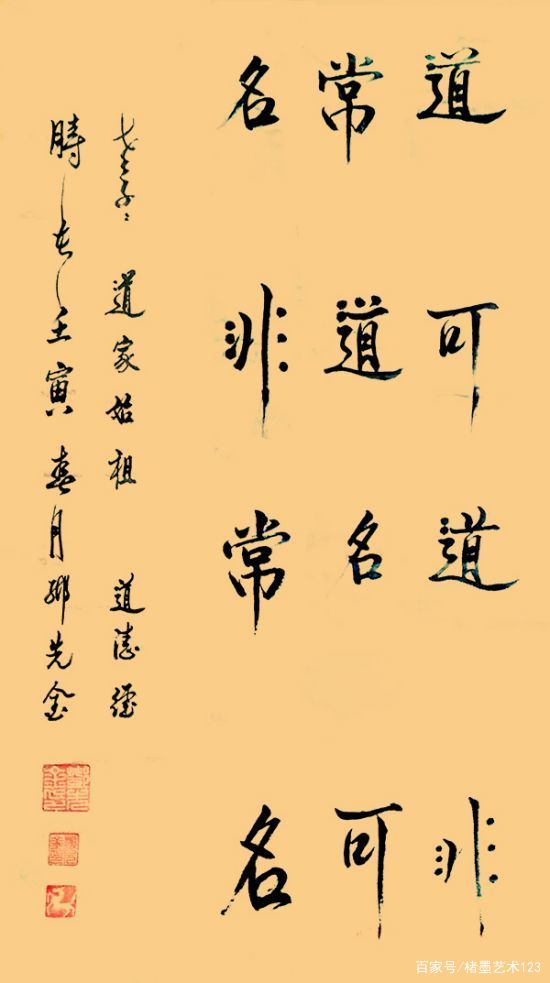 道可道非
常道名可
名非常名
老子 道家始祖 道德经
時在壬寅春月 先金
百家号/楮墨艺术123